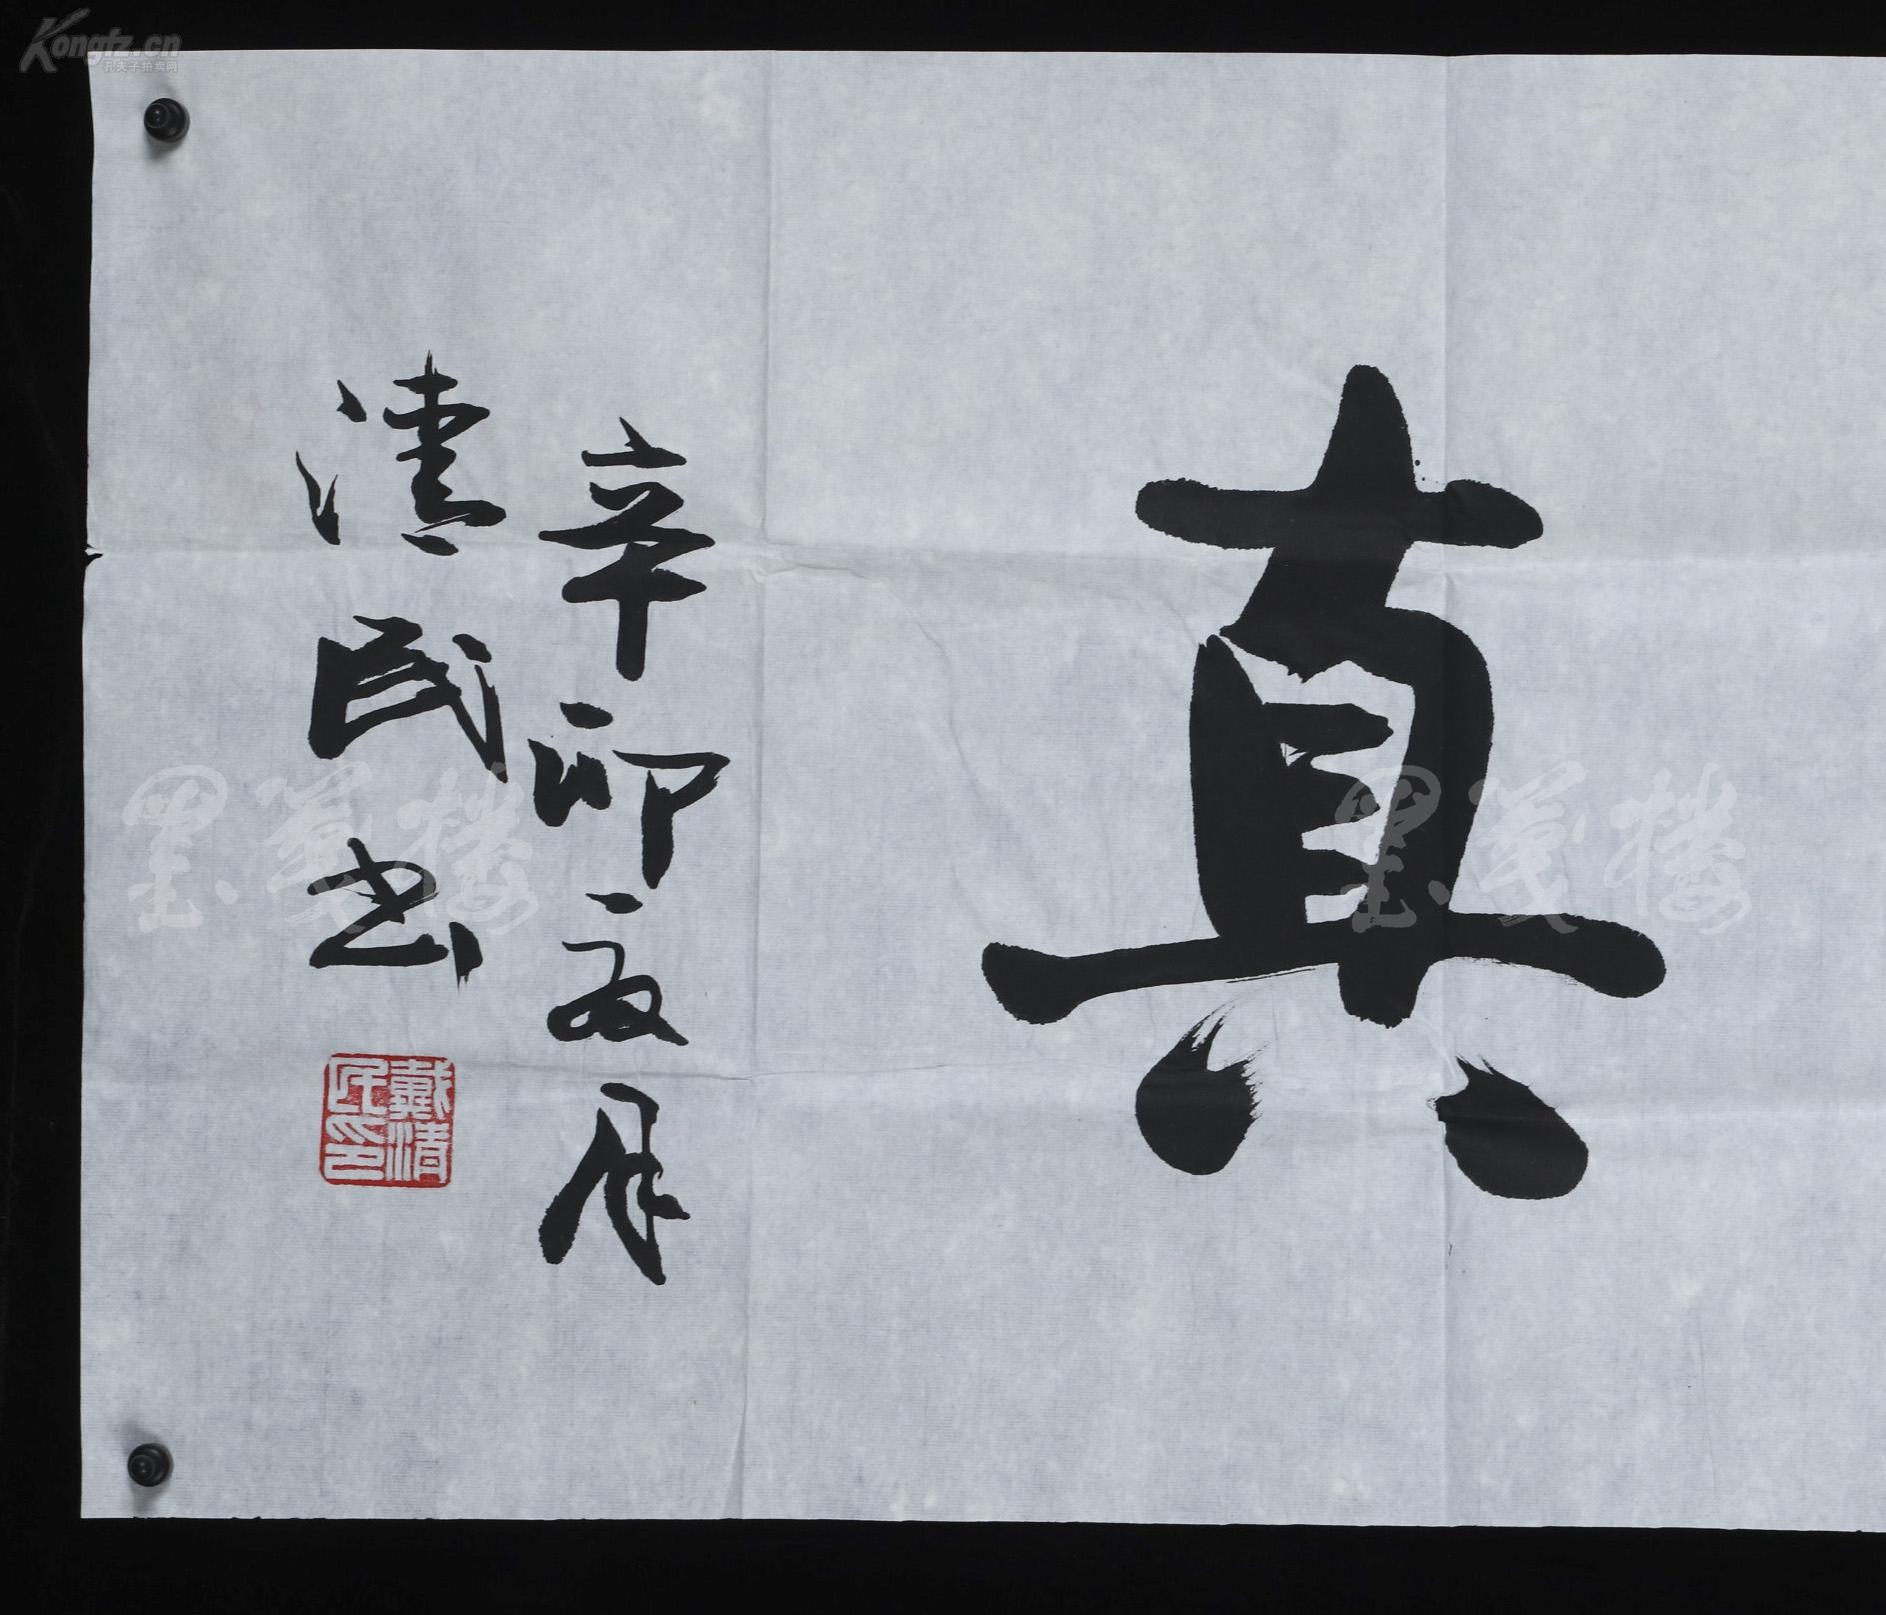 真
辛卯夏月
清民书
戴清民印
Kongfz.cn
孔夫子拍卖网
墨笺楼
墨笺楼